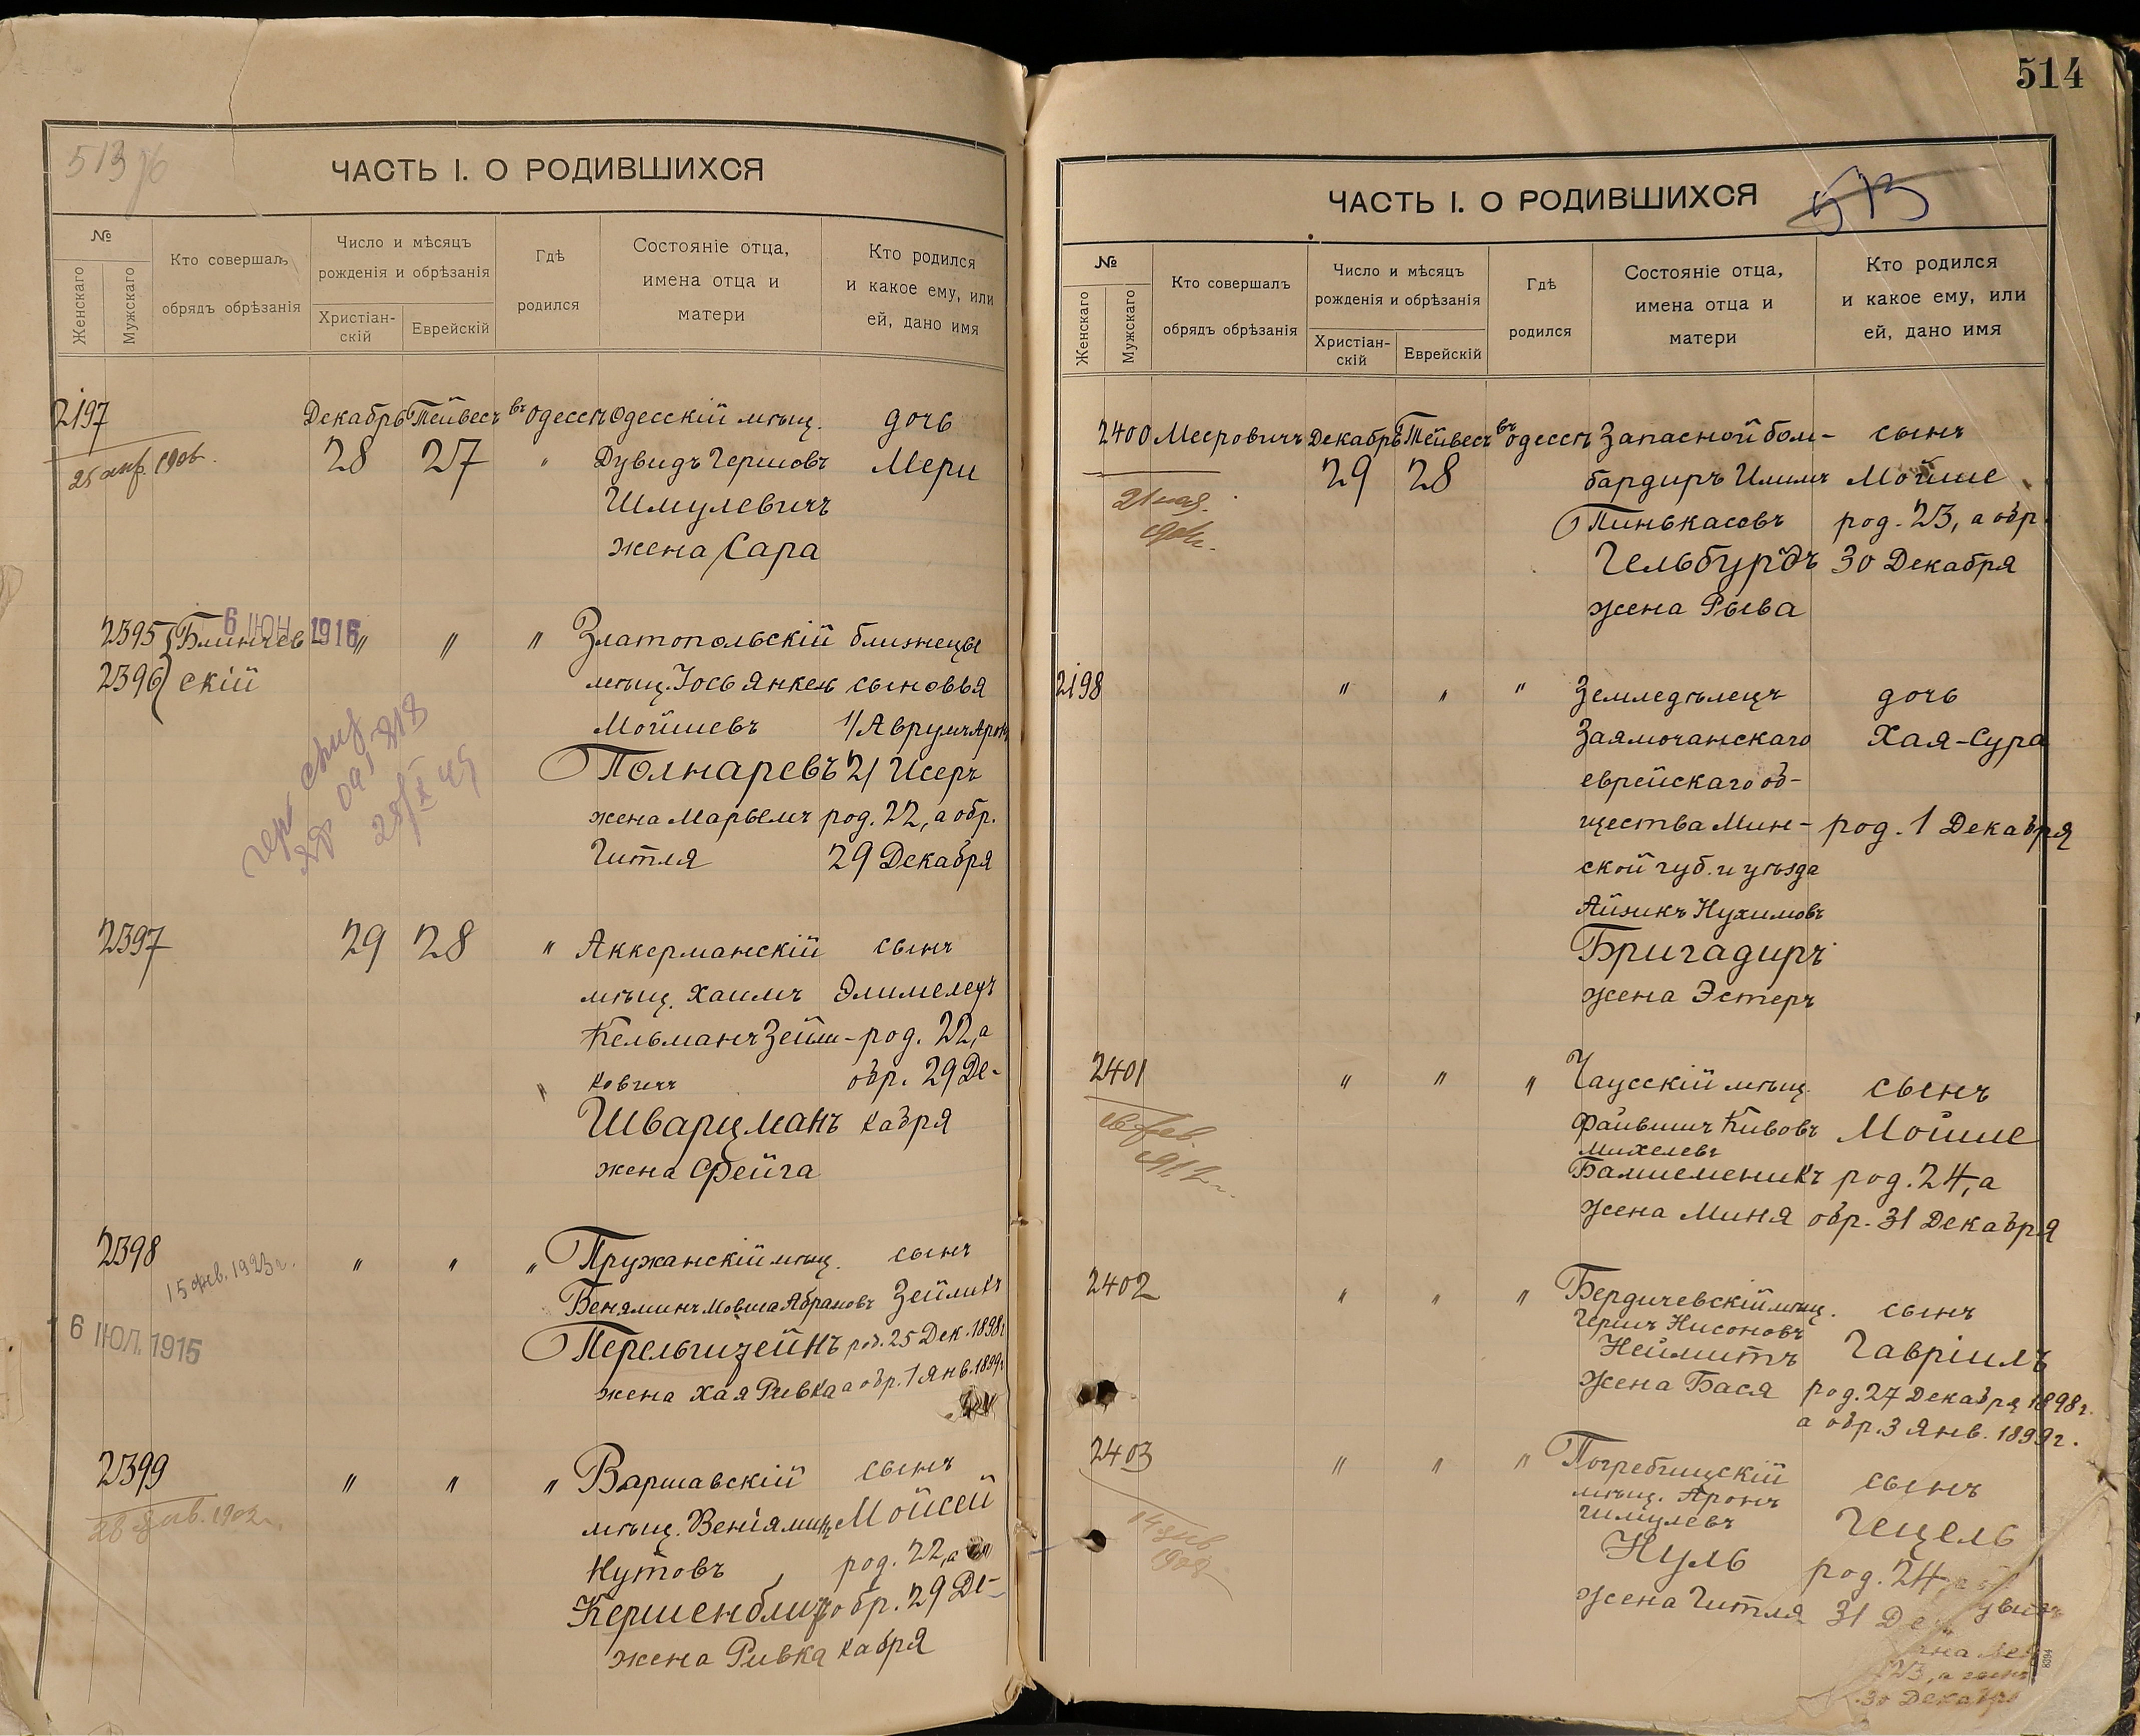 513 об
ЧАСТЬ I. О РОДИВШИХСЯ
№
Женскаго
Мужскаго
Кто совершалъ
обрядъ обрѣзанія
Число и мѣсяцъ
рожденія и обрѣзанія
Христіан-
скій
Еврейскій
Гдѣ
родился
Состояніе отца,
имена отца и
матери
Кто родился
и какое ему, или
ей, дано имя
2197 Декабрь Тейвесъ въ Одессѣ Одесскій мѣщ. дочь
28 27 " Дувидъ Гершовъ Мери
Шмулевичъ
жена Сара
2395 " " " Златопольскій близнецы
6 ІЮН 1916
2396 скій мѣщ. Іось Янкель сыновья
Мойшевъ 1/ Аврумъ Аронъ
Полнаревъ 2/ Исеръ
жена Марьемъ род. 22, а обр.
Гитля 29 Декабря
2397 29 28 " Аккерманскій сынъ
мѣщ. Хаимъ Элимелехъ
Кельманъ Зейли- род. 22, а
ковичъ обр. 29 Де-
Шварцманъ кабря
жена Фейга
2398 " " " Пружанскій мѣщ. сынъ
Веняминъ Мовша Абрамовъ Зейликъ
Перельштейнъ род. 25 Дек. 1898 г
жена Хая Ривка а обр. 1 Янв. 1899 г
6 ІЮЛ. 1915
2399 " " " Варшавскій сынъ
мѣщ. Веніяминъ Мойсей
Нутовъ род. 22, а
обр. 29 Де-
жена Ривка кабря
514
513
ЧАСТЬ I. О РОДИВШИХСЯ
№
Женскаго
Мужскаго
Кто совершалъ
обрядъ обрѣзанія
Число и мѣсяцъ
рожденія и обрѣзанія
Христіан-
скій
Еврейскій
Гдѣ
родился
Состояніе отца,
имена отца и
матери
Кто родился
и какое ему, или
ей, дано имя
2400 Мееровичъ Декабрь Тейвесъ въ Одессѣ Запасной бом- сынъ
29 28 бардиръ Мойше
Пинькасовъ род. 23, а обр.
Гельбурдъ 30 Декабря
жена Рыва
2198 " " " Земледѣлецъ дочь
Заямочанскаго Хая-Сура
еврейскаго об-
щества Мин- род. 1 Декабря
ской губ. и уѣзда
Айзикъ Нухимовъ
Бригадиръ
жена Эстеръ
2401 " " " Чаусскій мѣщ. сынъ
Файвишъ Кивовъ Мойше
Михелевъ
род. 24, а
жена Миня обр. 31 Декабря
2402 " " " Бердичевскій мѣщ. сынъ
Гершъ Нисоновъ
Неймитъ Гавріилъ
жена Бася род. 27 Декабря 1898 г.
а обр. 3 Янв. 1899 г.
2403 " " " Погребищскій сынъ
мѣщ. Аронъ
Шмулевъ Гецель
Нуль род. 24, а
жена Гитля 31 Дек
30 Декабря
8394